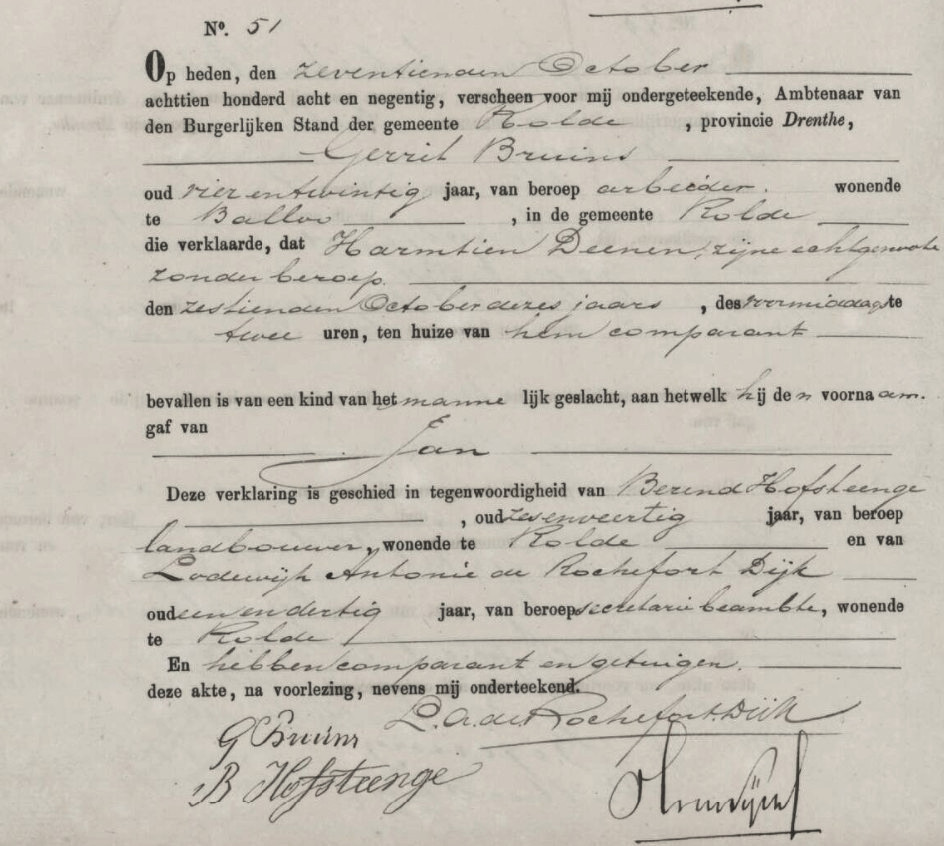 Nº. 51
Op heden, den zeventienden October
achttien honderd acht en negentig, verscheen voor mij ondergeteekende, Ambtenaar van
den Burgerlijken Stand der gemeente Rolde, provincie Drenthe,
Gerrit Bruins
oud vier en twintig jaar, van beroep arbeider. wonende
te Balloo, in de gemeente Rolde
die verklaarde, dat Harmtien Deenen, zijne echtgenoote
zonder beroep.
den zestienden October dezes jaars, des voormiddags te
twee uren, ten huize van hem comparant
bevallen is van een kind van het mannelijk geslacht, aan hetwelk hij den voornaam.
gaf van
Jan
Deze verklaring is geschied in tegenwoordigheid van Berend Hofsteenge
, oud zesenveertig jaar, van beroep
landbouwer, wonende te Rolde en van
Lodewijk Antonie de Rochefort Dijk
oud een en dertig jaar, van beroep secretarie beambte, wonende
te Rolde
En hebben comparant en getuigen.
deze akte, na voorlezing, nevens mij onderteekend.
L. A. de Rochefort Dijk
G Bruins
B Hofsteenge